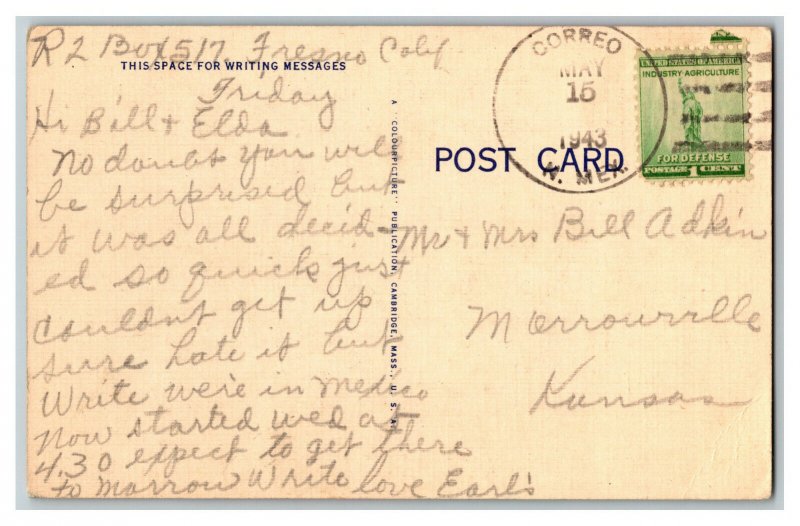 R 2 Box 517 Fresno Calif
THIS SPACE FOR WRITING MESSAGES
Friday
Hi Bill & Elda
No doubt you will
be surprised but
it was all decid-
ed so quick just
couldn't get up
sure hate it but
Write we're in Mexico
Now started wed at
4.30 expect to get there
to morrow Write love Earl's
A "COLOURPICTURE" PUBLICATION, CAMBRIDGE, MASS., U. S. A.
POST CARD
CORREO
MAY
15
1943
N. MEX.
UNITED STATES OF AMERICA
INDUSTRY-AGRICULTURE
FOR DEFENSE
POSTAGE 1 CENT
Mr & Mrs Bill Adkin
Morrowville
Kansas